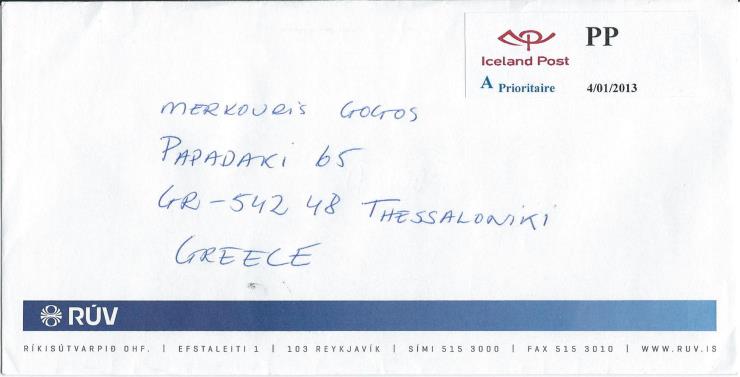 PP
Iceland Post
A Prioritaire 4/01/2013
MERKOURIS GOGOS
PAPADAKI 65
GR-542 48 THESSALONIKI
GREECE
RÚV
RÍKISÚTVARPIÐ OHF. | EFSTALEITI 1 | 103 REYKJAVÍK | SÍMI 515 3000 | FAX 515 3010 | WWW.RUV.IS